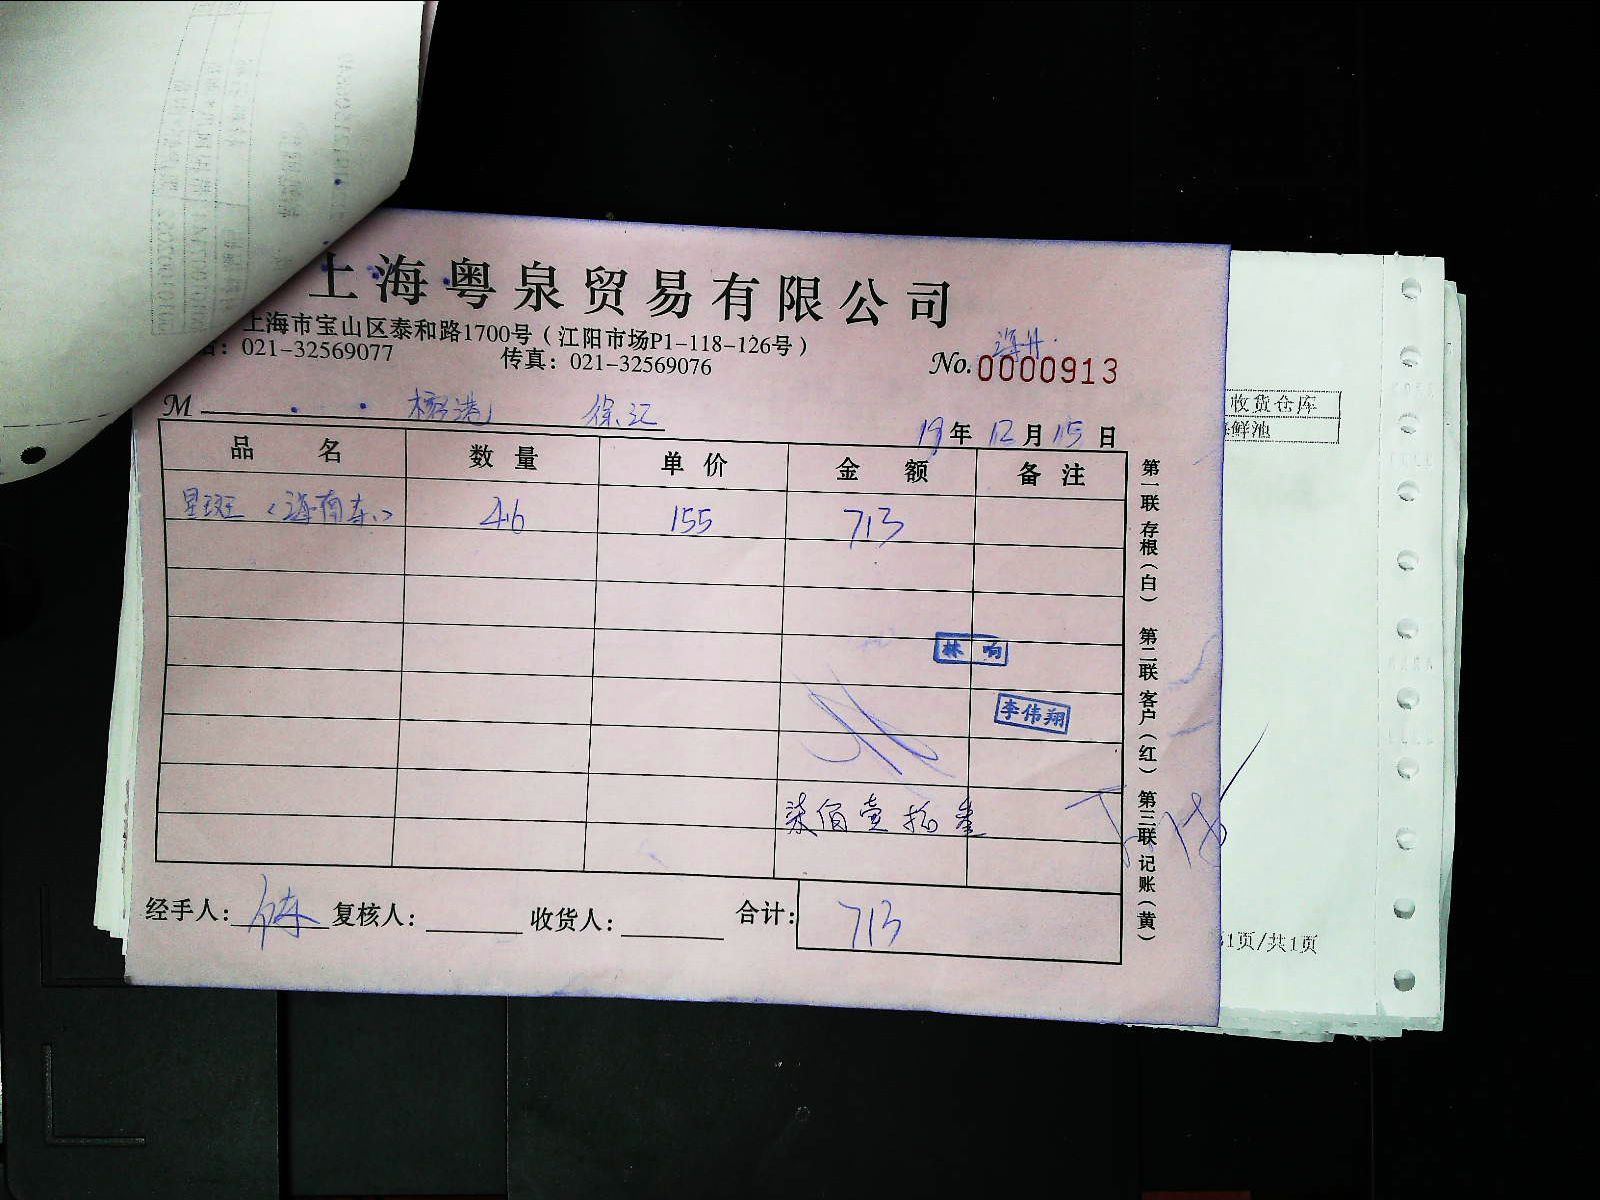 上海粤泉贸易有限公司
上海市宝山区泰和路1700号（江阳市场P1-118-126号）
021-32569077 传真：021-32569076
No.0000913
M 徐汇
19年12月15日
品名 数量 单价 金额 备注
星斑（海南东） 4.6 155 713
林响
李伟翔
柒佰壹拾叁
经手人： 复核人： 收货人： 合计：713
第一联存根（白） 第二联客户（红） 第三联记账（黄）
收货仓库
鲜池
1页/共1页